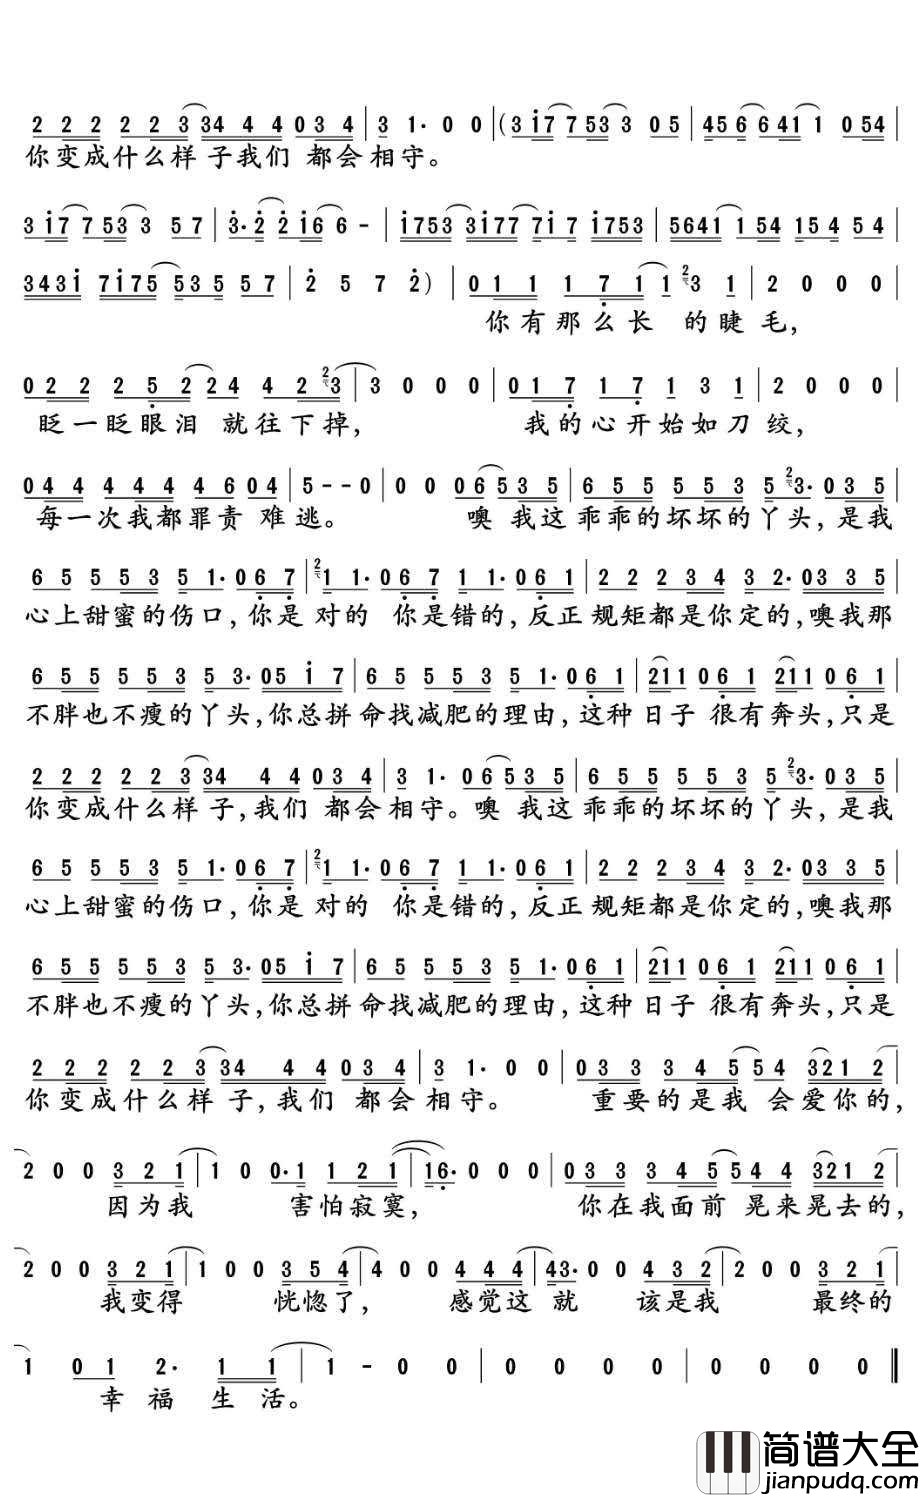 2 2 2 2 2 3 34 4 4 0 3 4 | 3 1· 0 0 |(3 i7 7 53 3 0 5 | 45 6 6 41 1 0 54 |
你变成什么样 子我们 都会相守。
3 i7 7 53 3 5 7 | 3· 2 2 i6 6 - | i753 3i77 7i 7 i753 | 5641 1 54 15 4 5 4 |
343i 7i75 535 57 | 2 5 7 2 ) | 0 1 1 1 7 1 1 2 3 1 | 2 0 0 0 |
你有那么长 的睫毛,
0 2 2 2 5 2 2 4 4 2 2 3 | 3 0 0 0 | 0 1 7 1 7 1 3 1 | 2 0 0 0 |
眨一眨眼泪 就往下掉, 我的心开始如刀绞,
0 4 4 4 4 4 4 6 0 4 | 5 - - 0 | 0 0 0 6 5 3 5 | 6 5 5 5 5 3 5 2 3· 0 3 5 |
每一次我都罪责 难逃。 噢 我这乖乖的坏坏的丫头,是我
6 5 5 5 3 5 1· 0 6 7 | 2 1 1· 0 6 7 1 1· 0 6 1 | 2 2 2 3 4 3 2· 0 3 3 5 |
心上甜蜜的伤口,你是 对的 你是错的,反正规矩都是你定的,噢我那
6 5 5 5 5 3 5 3· 0 5 i 7 | 6 5 5 5 3 5 1· 0 6 1 | 2 1 1 0 6 1 2 1 1 0 6 1 |
不胖也不瘦的丫头,你总拼命找减肥的理由,这种日子 很有奔头,只是
2 2 2 2 2 3 34 4 4 0 3 4 | 3 1· 0 6 5 3 5 | 6 5 5 5 5 3 5 2 3· 0 3 5 |
你变成什么样 子,我们 都会相守。噢 我这乖乖的坏坏的丫头,是我
6 5 5 5 3 5 1· 0 6 7 | 2 1 1· 0 6 7 1 1· 0 6 1 | 2 2 2 3 4 3 2· 0 3 3 5 |
心上甜蜜的伤口,你是 对的 你是错的,反正规矩都是你定的,噢我那
6 5 5 5 5 3 5 3· 0 5 i 7 | 6 5 5 5 3 5 1· 0 6 1 | 2 1 1 0 6 1 2 1 1 0 6 1 |
不胖也不瘦的丫头,你总拼命找减肥的理由,这种日子 很有奔头,只是
2 2 2 2 2 3 34 4 4 0 3 4 | 3 1· 0 0 | 0 3 3 3 4 5 5 4 3 2 1 2 |
你变成什么样 子,我们 都会相守。 重要的是我 会爱你的,
2 0 0 3 2 1 | 1 0 0· 1 1 2 1 | 1 6· 0 0 0 | 0 3 3 3 4 5 5 4 4 3 2 1 2 |
因为我 害怕寂寞, 你在我面前 晃来晃去的,
2 0 0 3 2 1 | 1 0 0 3 5 4 | 4 0 0 4 4 4 | 4 3· 0 0 4 3 2 | 2 0 0 3 2 1 |
我变得 恍惚了, 感觉这 就 该是我 最终的
1 0 1 2· 1 1 | 1 - 0 0 | 0 0 0 0 | 0 0 0 0 ‖
幸 福 生 活。
简谱大全
jianpudq.com